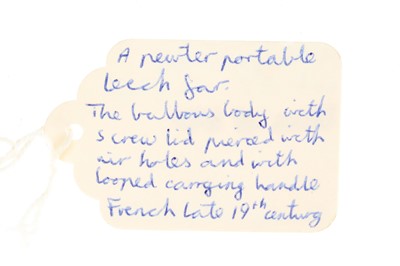 A pewter portable
leech jar.
The bulbous body with
screw lid pierced with
air holes and with
looped carrying handle
French Late 19th century